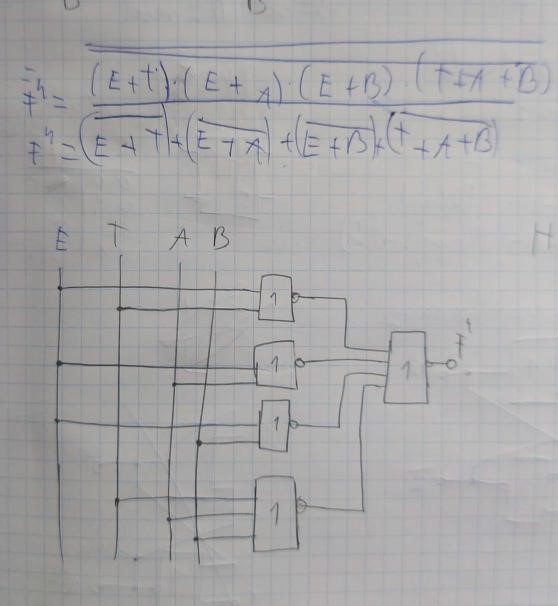 F^4 = (E + T) · (E + A) · (E + B) · (T + A + B)
F^4 = (E + T) + (E + A) + (E + B) + (T + A + B)
E T A B H
1
1 F^4
1
1
1